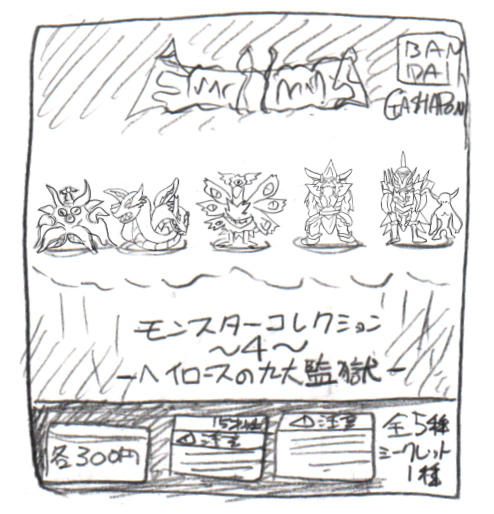 BAN
DAI
GASHAPON
モンスターコレクション
～4～
ーヘイロースの九大監獄ー
各300円
⚠注意
⚠注意
全5種
シークレット
1種